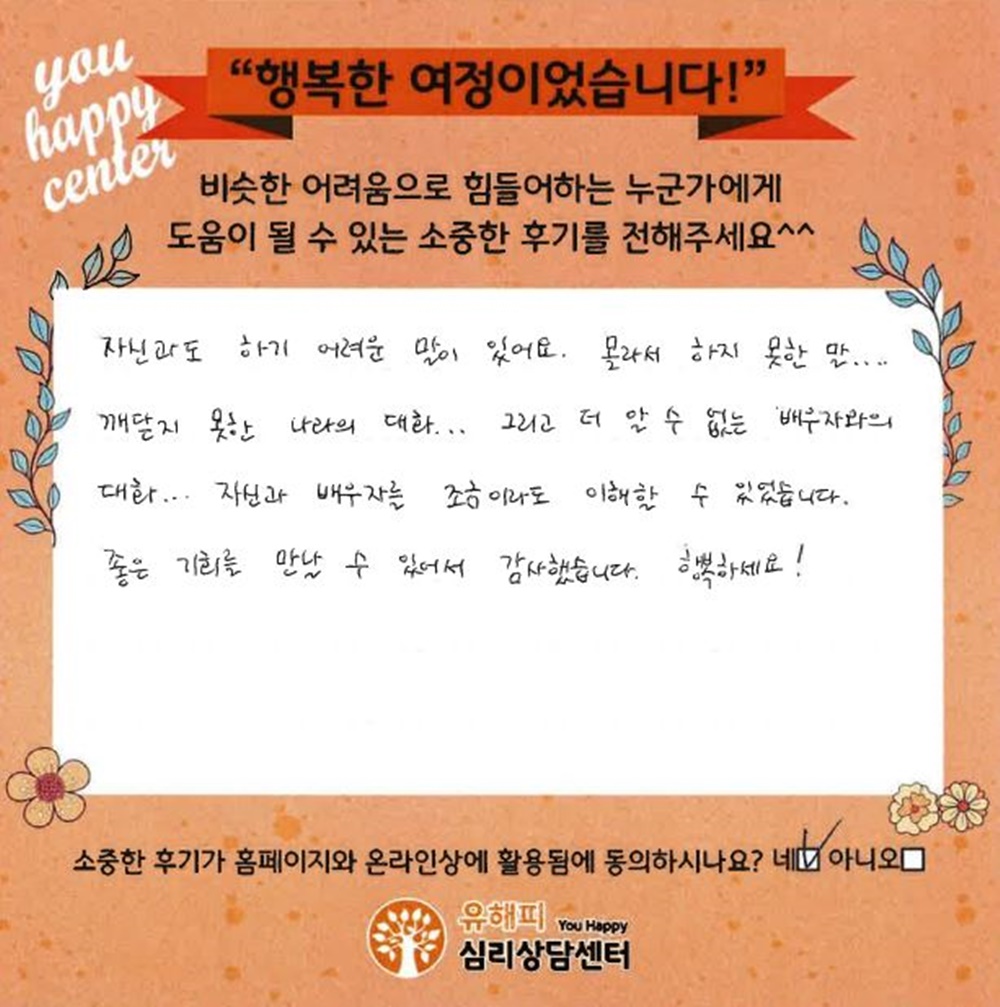 you
happy
center
“행복한 여정이었습니다!”
비슷한 어려움으로 힘들어하는 누군가에게
도움이 될 수 있는 소중한 후기를 전해주세요^^
자신과도 하기 어려운 말이 있어요. 몰라서 하지 못한 말....
깨닫지 못한 나와의 대화... 그리고 더 알 수 없는 배우자와의
대화... 자신과 배우자를 조금이라도 이해할 수 있었습니다.
좋은 기회를 만날 수 있어서 감사했습니다. 행복하세요!
소중한 후기가 홈페이지와 온라인상에 활용됨에 동의하시나요? 네☑ 아니오☐
유해피 You Happy
심리상담센터